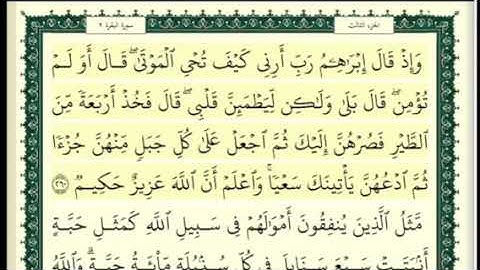 الجزء الثالث
سورة البقرة ٢
وَإِذْ قَالَ إِبْرَٰهِـۧمُ رَبِّ أَرِنِى كَيْفَ تُحْىِ ٱلْمَوْتَىٰ ۖ قَالَ أَوَلَمْ
تُؤْمِن ۖ قَالَ بَلَىٰ وَلَـٰكِن لِّيَطْمَئِنَّ قَلْبِى ۖ قَالَ فَخُذْ أَرْبَعَةً مِّنَ
ٱلطَّيْرِ فَصُرْهُنَّ إِلَيْكَ ثُمَّ ٱجْعَلْ عَلَىٰ كُلِّ جَبَلٍ مِّنْهُنَّ جُزْءًا
ثُمَّ ٱدْعُهُنَّ يَأْتِينَكَ سَعْيًا ۚ وَٱعْلَمْ أَنَّ ٱللَّهَ عَزِيزٌ حَكِيمٌ ٢٦٠
مَّثَلُ ٱلَّذِينَ يُنفِقُونَ أَمْوَٰلَهُمْ فِى سَبِيلِ ٱللَّهِ كَمَثَلِ حَبَّةٍ
أَنۢبَتَتْ سَبْعَ سَنَابِلَ فِى كُلِّ سُنۢبُلَةٍ مِّا۟ئَةُ حَبَّةٍ ۗ وَٱللَّهُ